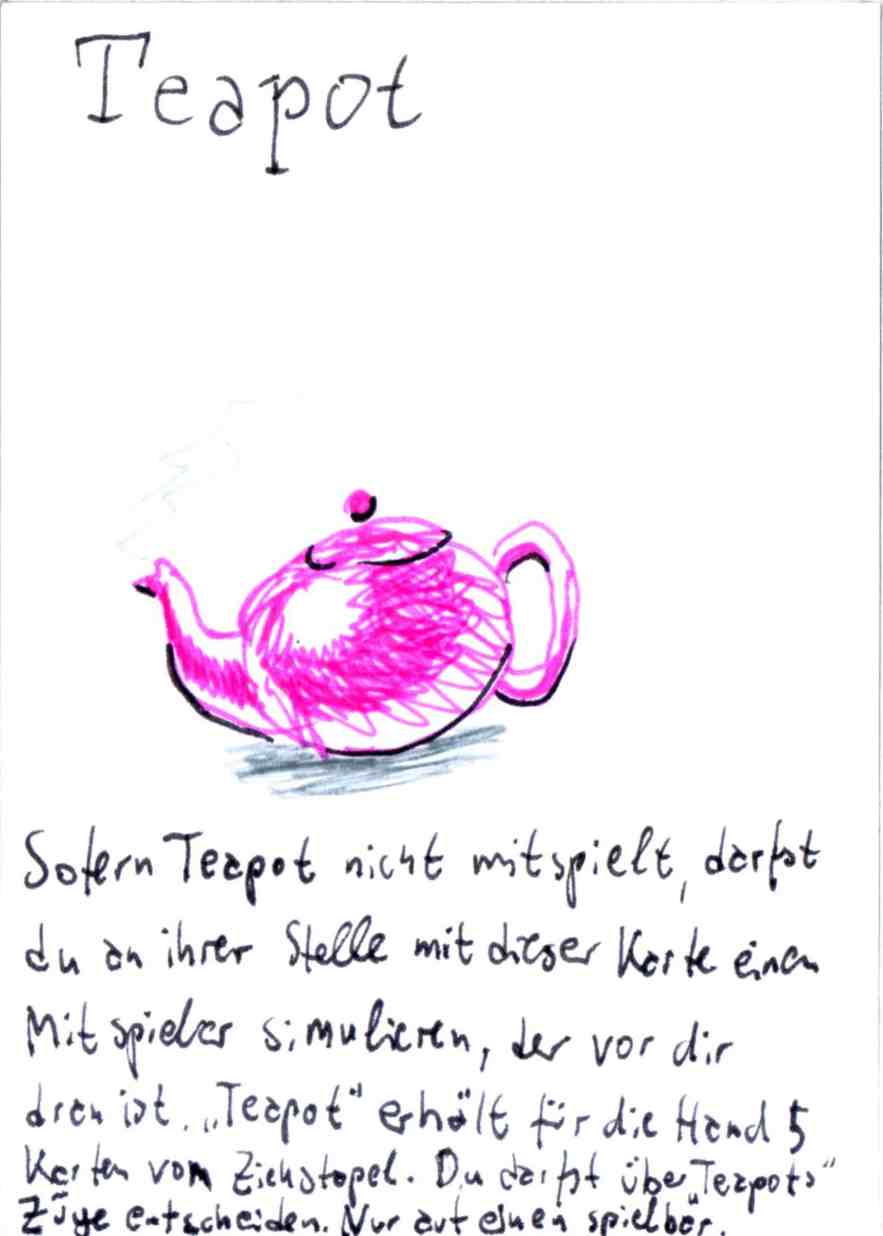 Teapot
Sofern Teapot nicht mitspielt, darfst
du an ihrer Stelle mit dieser Karte einen
Mitspieler simulieren, der vor dir
dran ist. „Teapot“ erhält für die Hand 5
Karten vom Ziehstapel. Du darfst über „Teapots“
Züge entscheiden. Nur auf einen spielbar.